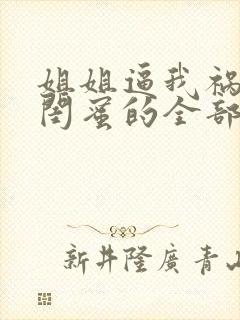 姐姐逼我祸
闺蜜的全部
新井隆廣青山